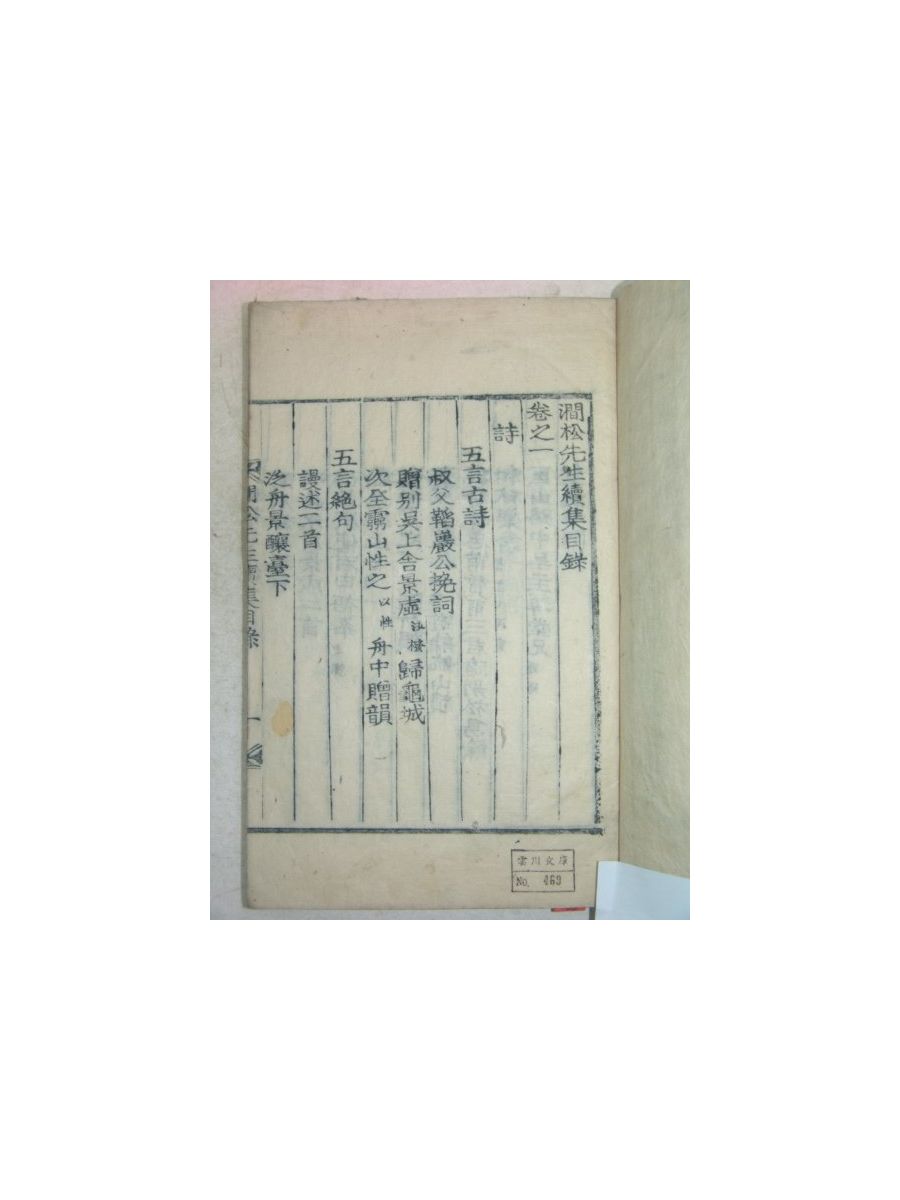 澗松先生續集目錄
卷之一
詩
五言古詩
叔父韜巖公挽詞
贈別吳上舍景虛汝𣒃歸龜城
次全霧山性之以性舟中贈韻
五言絕句
謾述二首
泛舟景釀臺下
澗松先生續集目錄 一
雲川文庫
No. 463